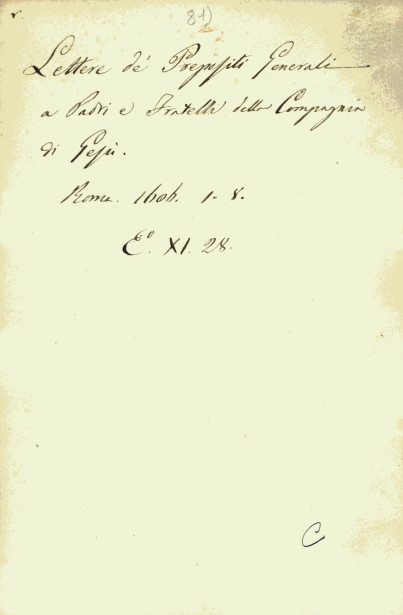 81)
Lettere de' Prepositi Generali
a Padri e Fratelli della Compagnia
di Gesù.
Roma. 1606. 1-8.
E°. XI. 28.
C